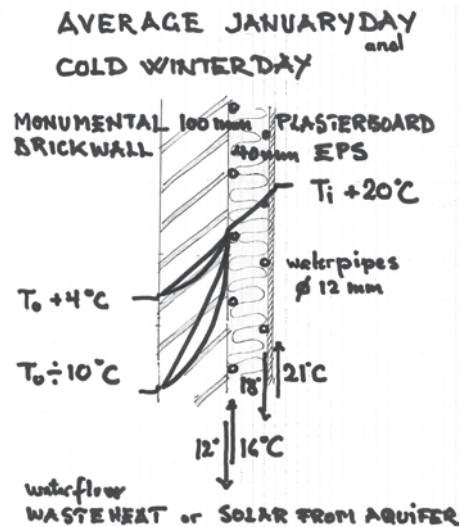 AVERAGE JANUARY DAY
and
COLD WINTERDAY
MONUMENTAL 100mm PLASTERBOARD
BRICKWALL 40mm EPS
Ti +20°C
waterpipes
ø 12 mm
To +4°C
To ÷10°C
18° 21°C
12° 16°C
waterflow
WASTEHEAT or SOLAR FROM AQUIFER